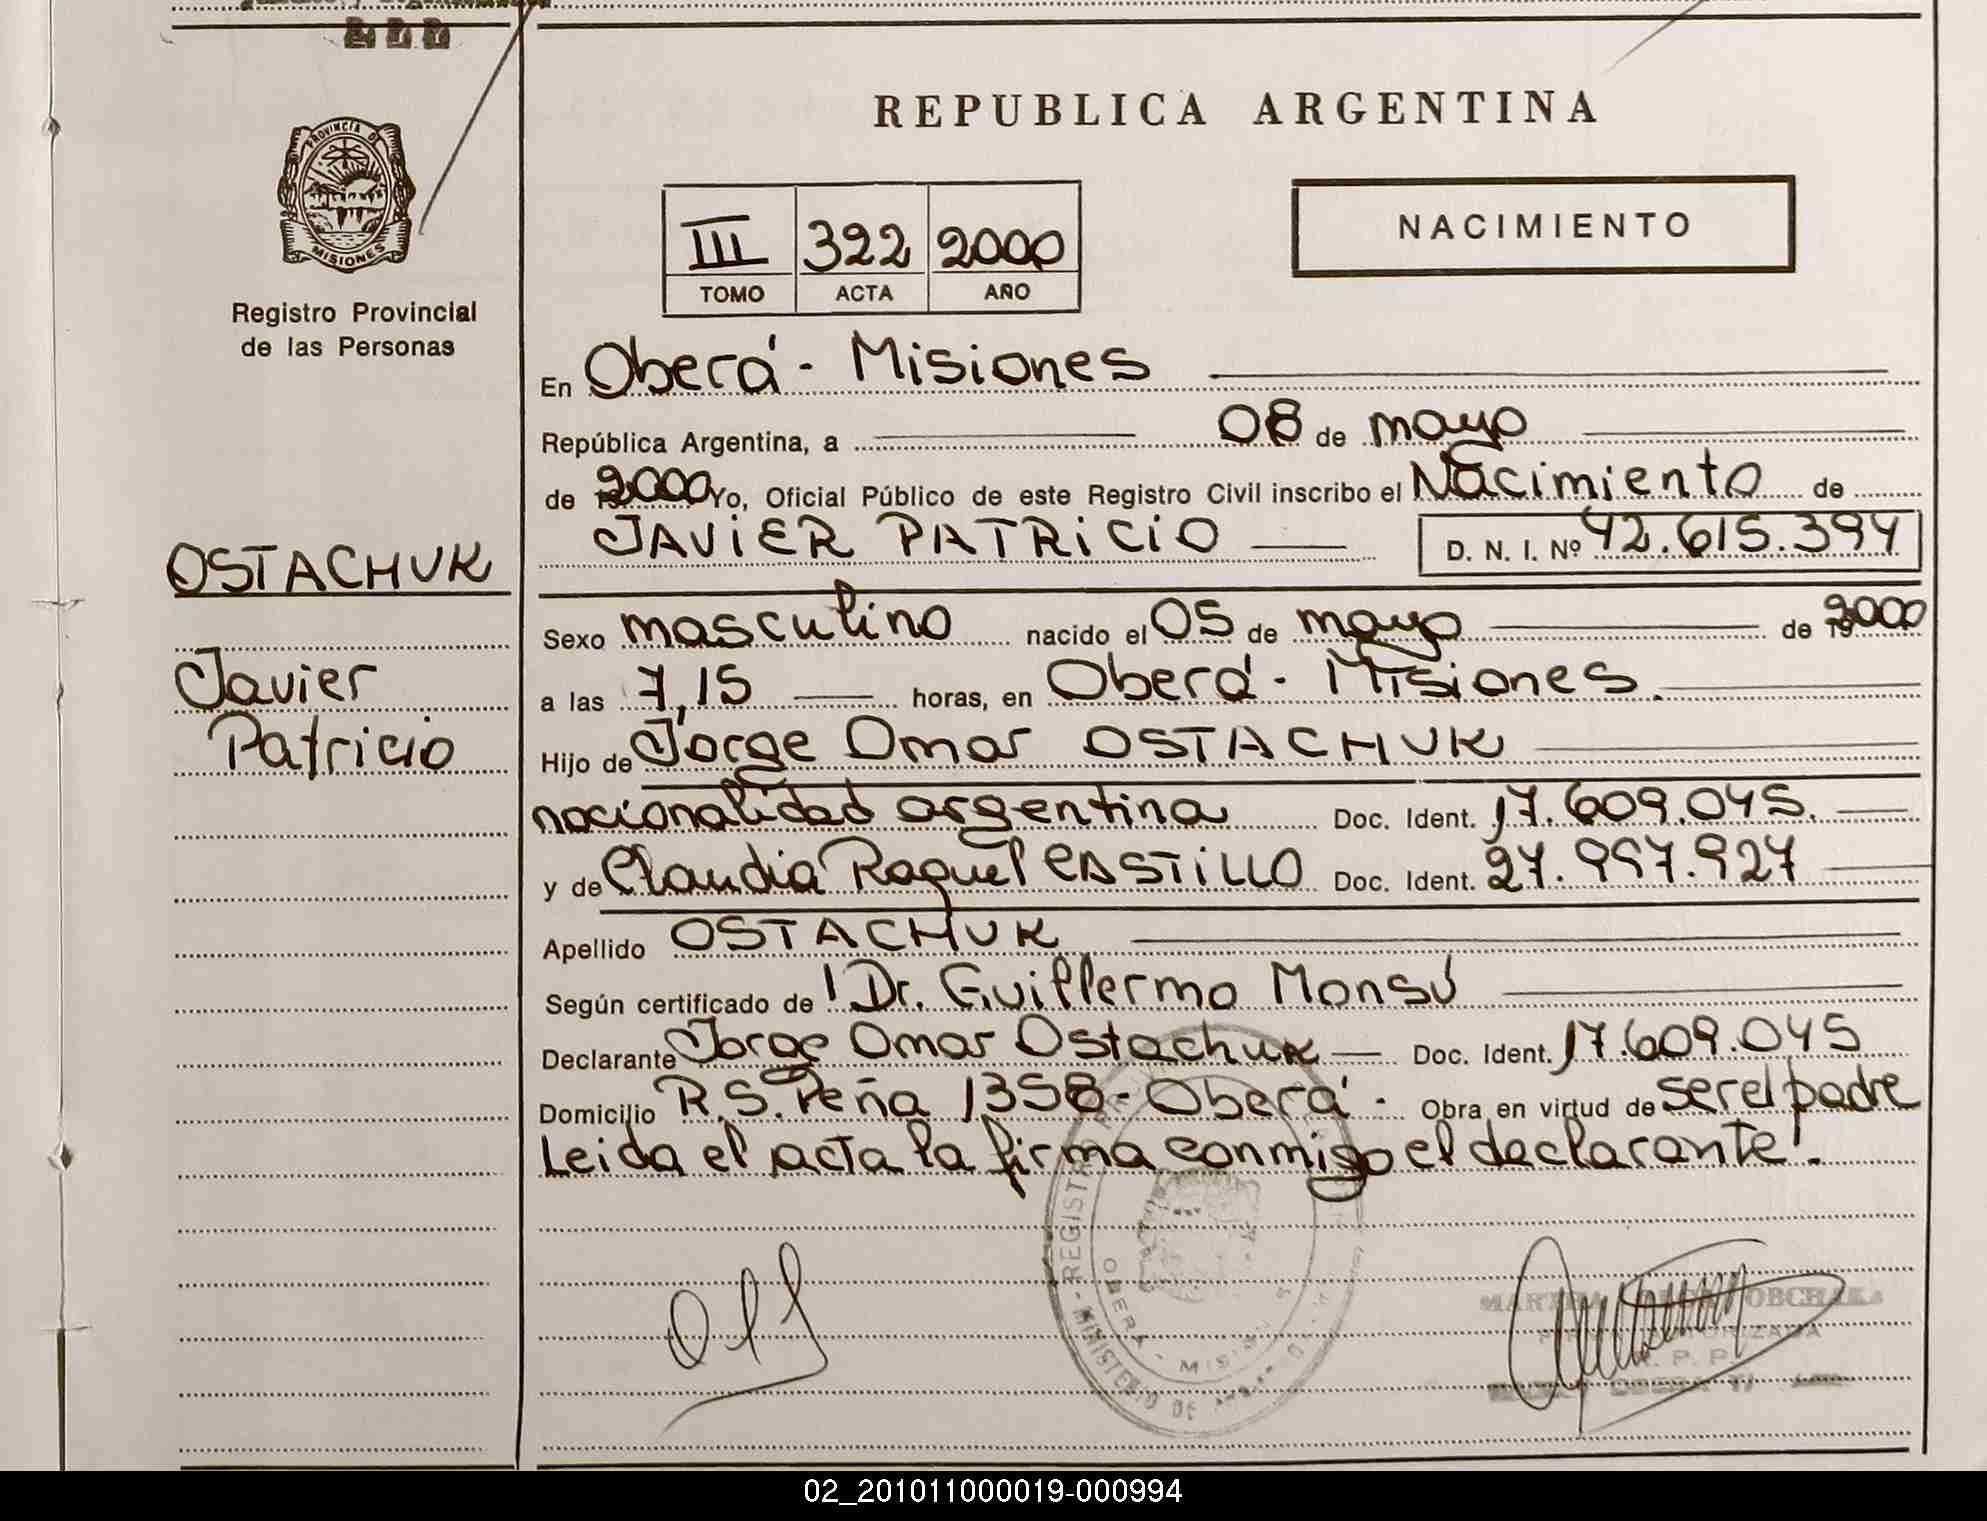 REPUBLICA ARGENTINA
PROVINCIA DE MISIONES
Registro Provincial
de las Personas
III 322 2000
TOMO ACTA AÑO
NACIMIENTO
OSTACHUK
Javier
Patricio
En Oberá - Misiones
República Argentina, a 08 de mayo
de 2000 Yo, Oficial Público de este Registro Civil inscribo el Nacimiento de
JAVIER PATRICIO D. N. I. Nº 42.615.394
Sexo masculino nacido el 05 de mayo de 2000
a las 7,15 horas, en Oberá - Misiones.
Hijo de Jorge Omar OSTACHUK
nacionalidad argentina Doc. Ident. 17.609.045.
y de Claudia Raquel CASTILLO Doc. Ident. 27.997.927
Apellido OSTACHUK
Según certificado de Dr. Guillermo Monsú
Declarante Jorge Omar Ostachuk Doc. Ident. 17.609.045
Domicilio R.S. Peña 1358 - Oberá - Obra en virtud de ser el padre
Leida el acta la firma conmigo el declarante.
OBERA - MISIONES
MINISTERIO DE
R. P. P.
02_201011000019-000994